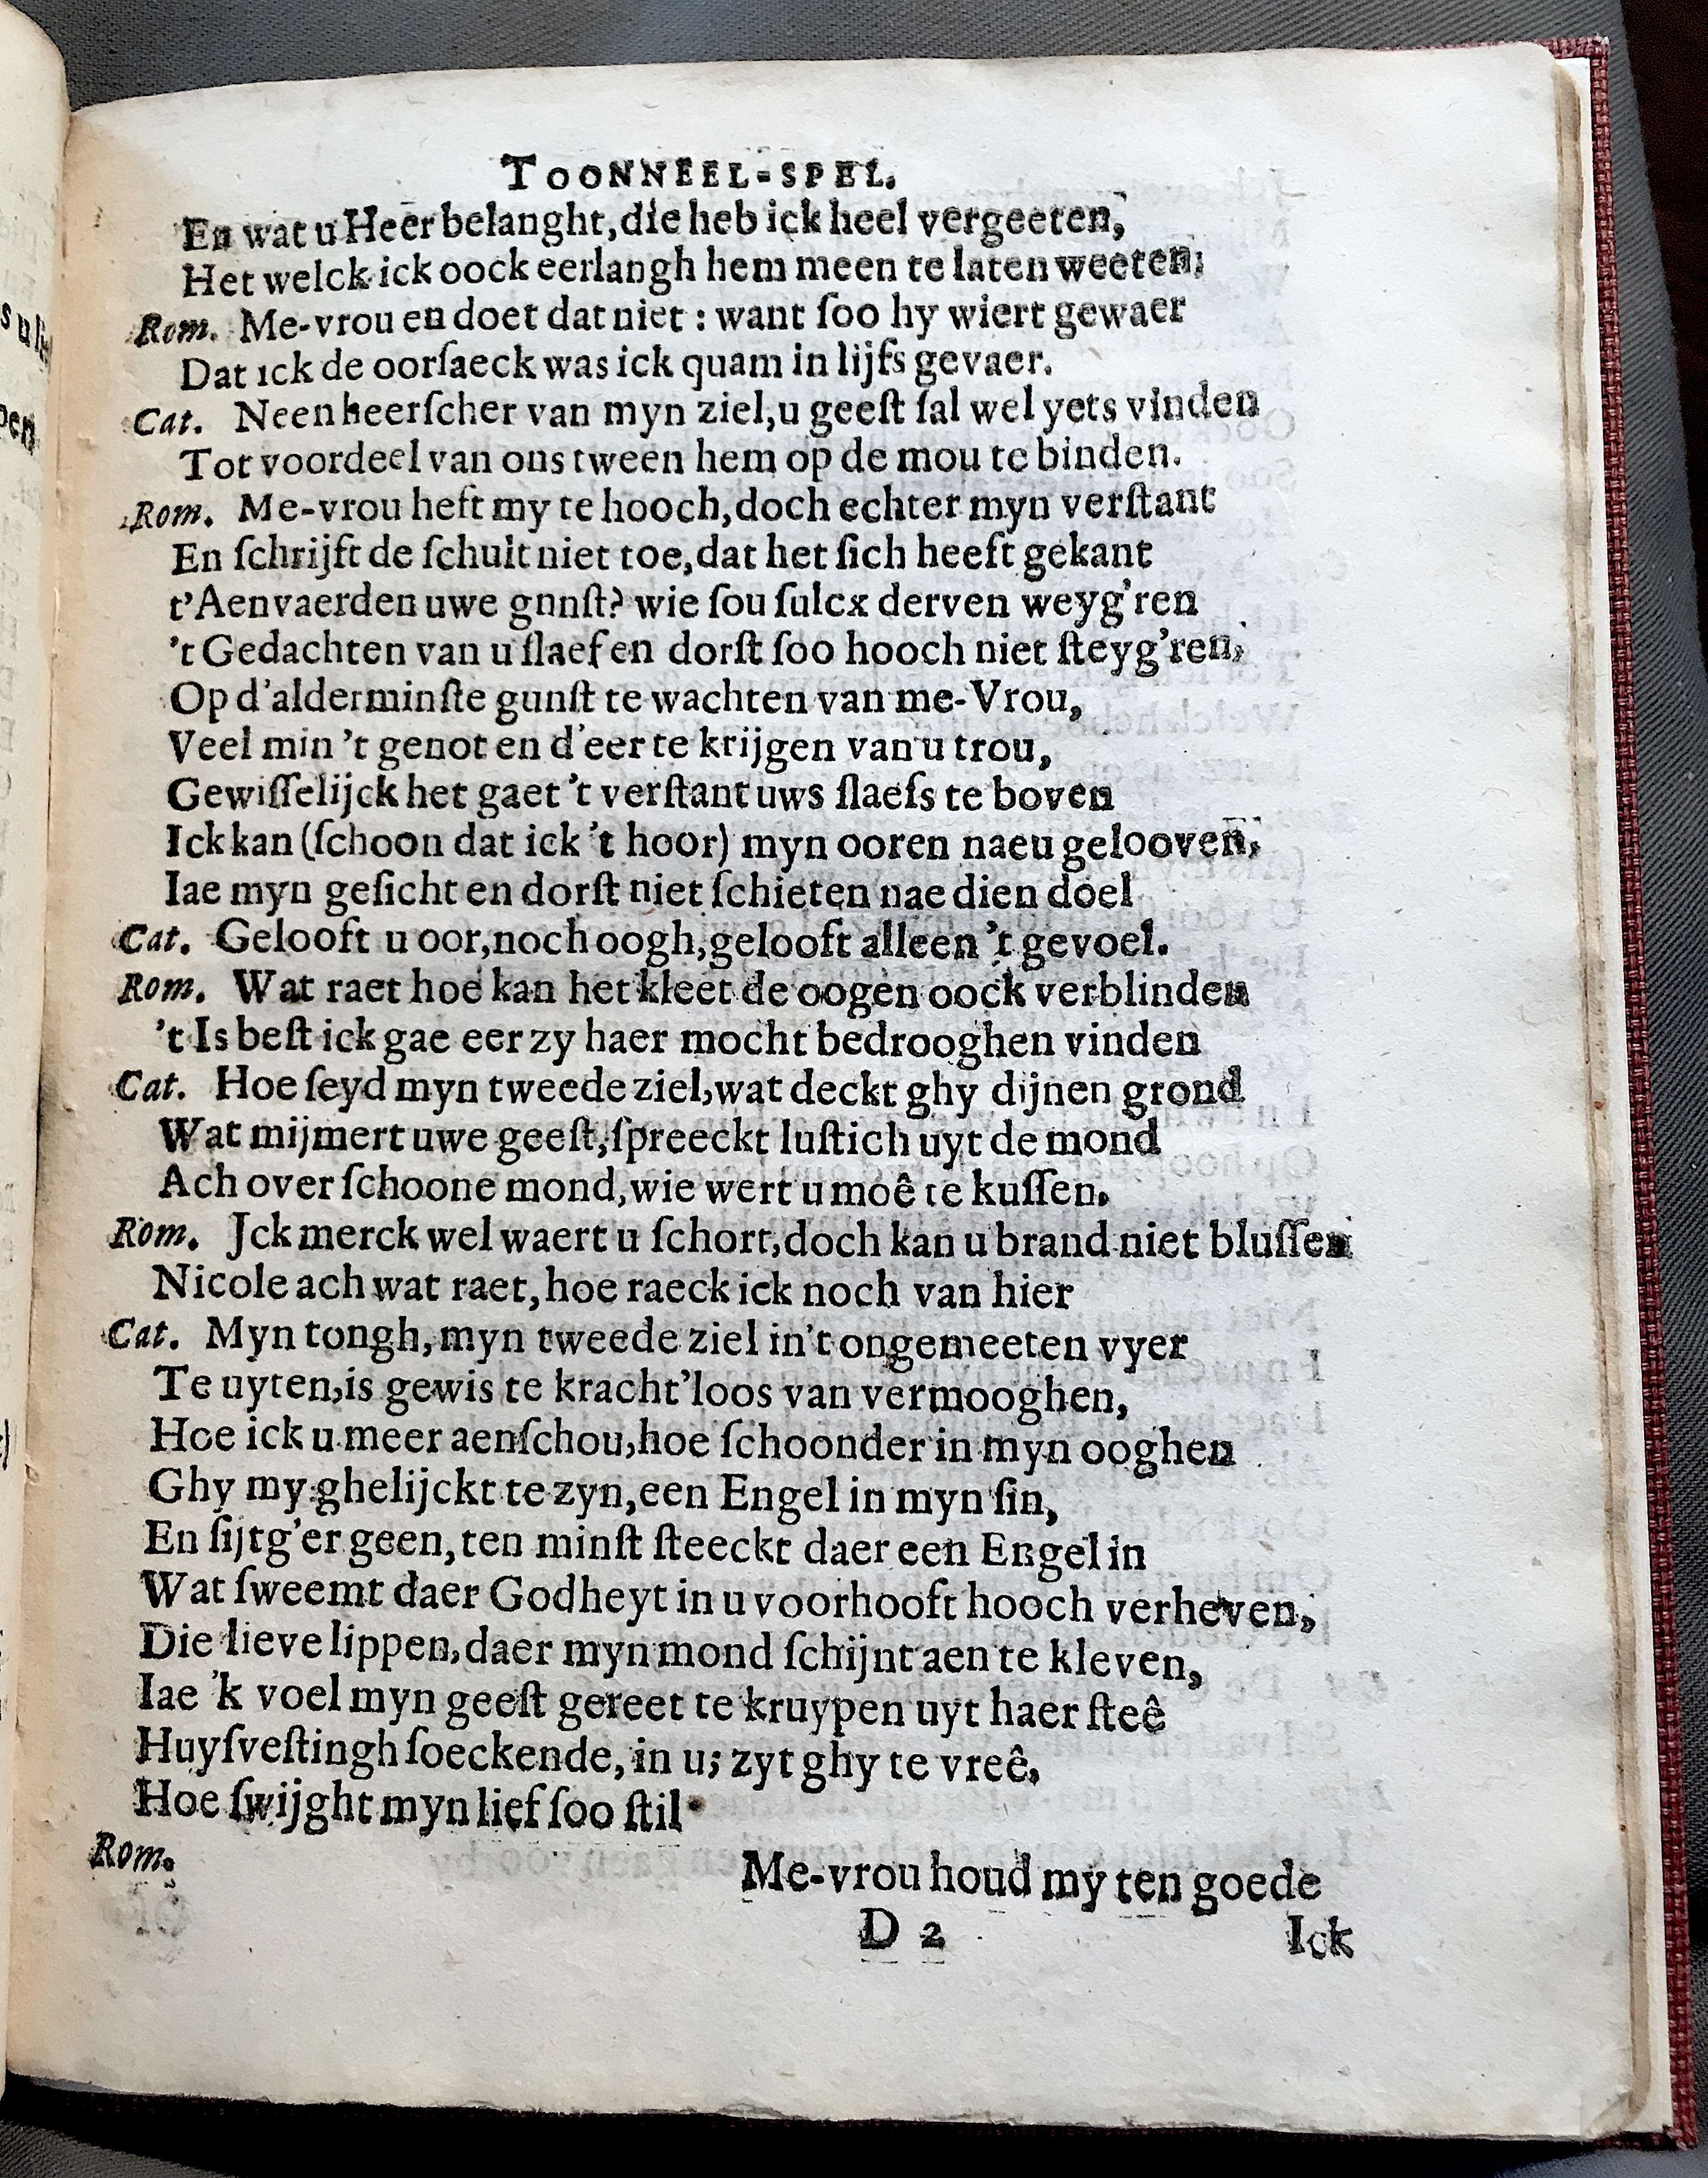 TOONNEEL-SPEL.
En wat u Heer belanght, die heb ick heel vergeeten,
Het welck ick oock eerlangh hem meen te laten weeten;
Rom. Me-vrou en doet dat niet : want ſoo hy wiert gewaer
Dat ick de oorſaeck was ick quam in lijfs gevaer.
Cat. Neen heerſcher van myn ziel, u geeſt ſal wel yets vinden
Tot voordeel van ons tween hem op de mou te binden.
Rom. Me-vrou heft my te hooch, doch echter myn verſtant
En ſchrijft de ſchult niet toe, dat het ſich heeft gekant
t'Aenvaerden uwe gnnſt? wie ſou ſulcx derven weyg'ren
't Gedachten van u ſlaef en dorſt ſoo hooch niet ſteyg'ren,
Op d'alderminſte gunſt te wachten van me-Vrou,
Veel min 't genot en d'eer te krijgen van u trou,
Gewiſſelijck het gaet 't verſtant uws ſlaefs te boven
Ick kan (ſchoon dat ick 't hoor) myn ooren naeu gelooven,
Iae myn geſicht en dorſt niet ſchieten nae dien doel
Cat. Gelooft u oor, noch oogh, gelooft alleen 't gevoel.
Rom. Wat raet hoe kan het kleet de oogen oock verblinden
't Is beſt ick gae eer zy haer mocht bedrooghen vinden
Cat. Hoe ſeyd myn tweede ziel, wat deckt ghy dijnen grond
Wat mijmert uwe geeſt, ſpreeckt luſtich uyt de mond
Ach over ſchoone mond, wie wert u moê te kuſſen.
Rom. Jck merck wel waert u ſchort, doch kan u brand niet bluſſen
Nicole ach wat raet, hoe raeck ick noch van hier
Cat. Myn tongh, myn tweede ziel in't ongemeeten vyer
Te uyten, is gewis te kracht'loos van vermooghen,
Hoe ick u meer aenſchou, hoe ſchoonder in myn ooghen
Ghy my ghelijckt te zyn, een Engel in myn ſin,
En ſijtg'er geen, ten minſt ſteeckt daer een Engel in
Wat ſweemt daer Godheyt in u voorhooft hooch verheven,
Die lieve lippen, daer myn mond ſchijnt aen te kleven,
Iae 'k voel myn geeſt gereet te kruypen uyt haer ſteê
Huyſveſtingh ſoeckende, in u; zyt ghy te vreê,
Hoe ſwijght myn lief ſoo ſtil.
Rom.
Me-vrou houd my ten goede
D 2
Ick